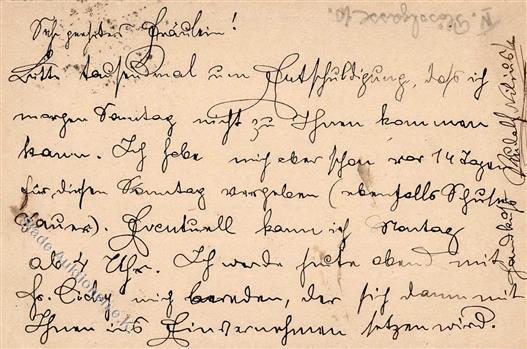 Sehr geehrtes Fräulein!
Bitte tausendmal um Entschuldigung, dass ich
morgen Sonntag nicht zu Ihnen kommen
kann. Ich habe mich aber schon vor 14 Tagen
für diesen Sonntag vergeben (ebenfalls
). Eventuell kann ich Montag
ab 4 Uhr. Ich werde heute abend mit
Dr. mich bereden, der sich dann mit
Ihnen ins Einvernehmen setzen wird.
Handkuss Rudolf